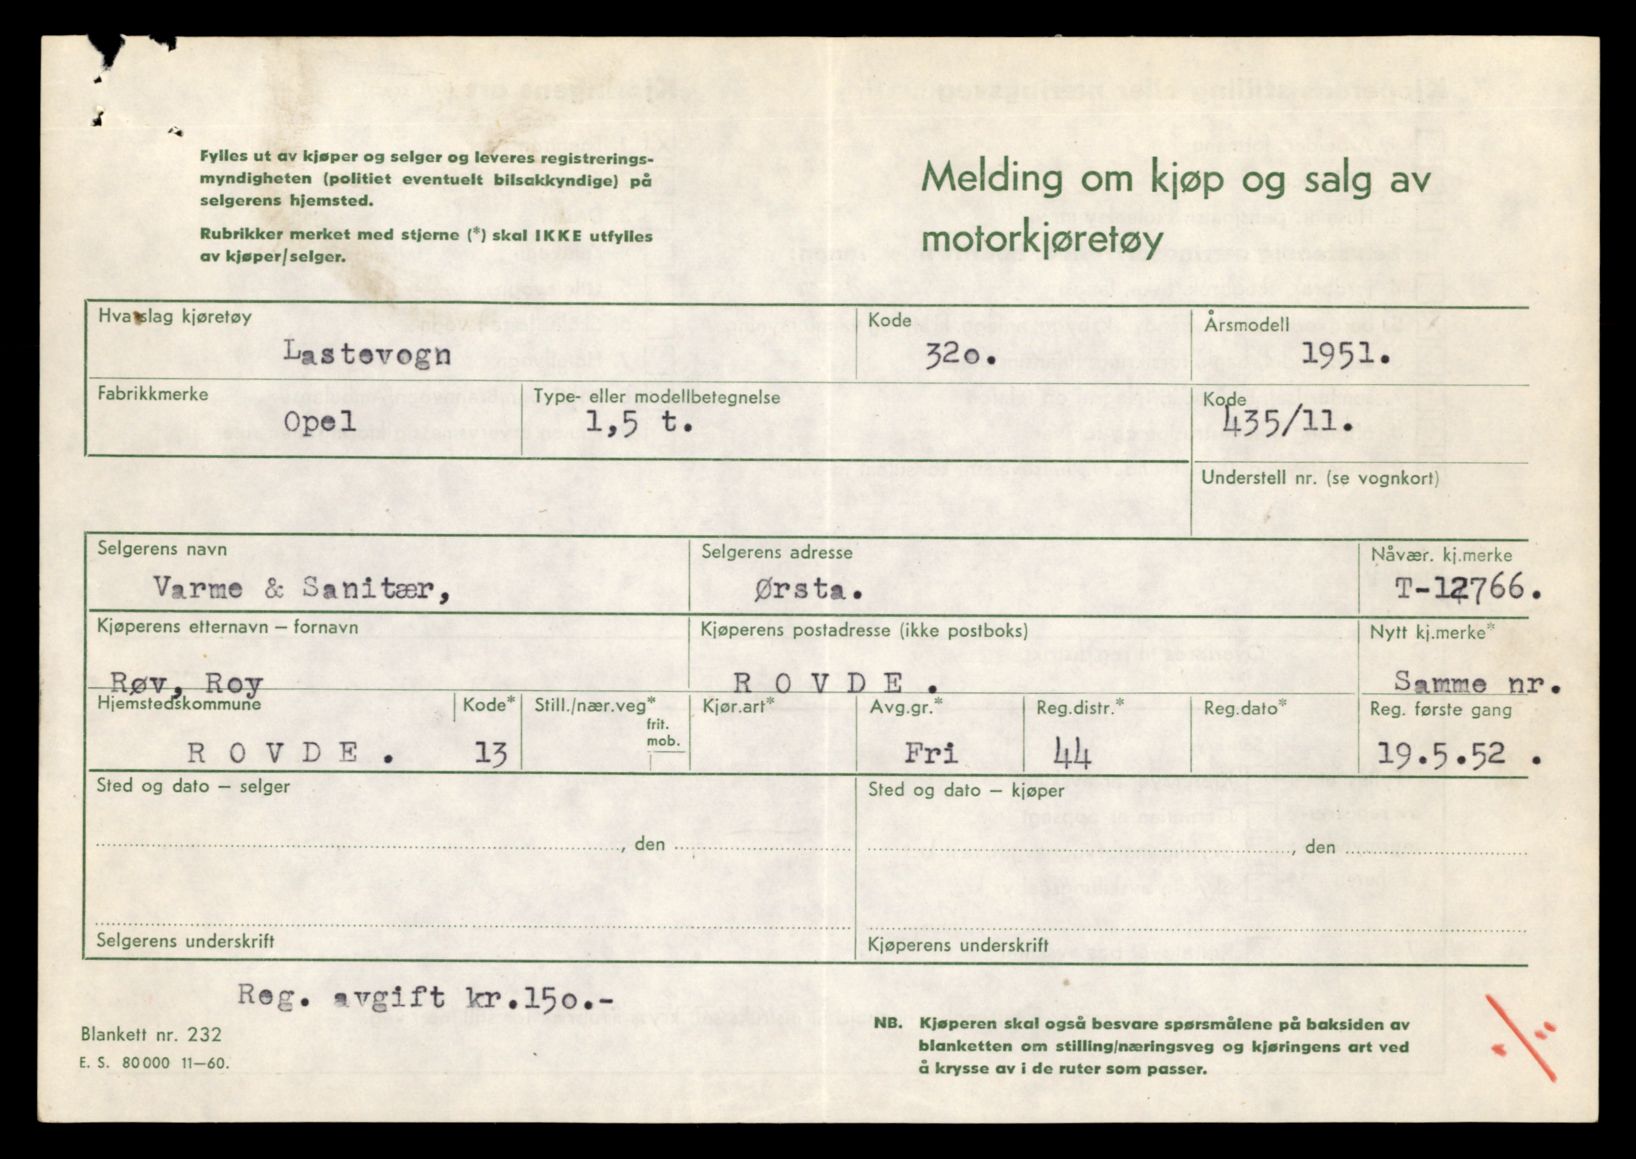 Fylles ut av kjøper og selger og leveres registrerings-
myndigheten (politiet eventuelt bilsakkyndige) på
selgerens hjemsted.
Rubrikker merket med stjerne (*) skal IKKE utfylles
av kjøper/selger.
Melding om kjøp og salg av
motorkjøretøy
Hva slag kjøretøy
Lastevogn
Kode
32o.
Årsmodell
1951.
Fabrikkmerke
Opel
Type- eller modellbetegnelse
1,5 t.
Kode
435/11.
Understell nr. (se vognkort)
Selgerens navn
Varme & Sanitær,
Selgerens adresse
Ørsta.
Nåvær. kj.merke
T-12766.
Kjøperens etternavn – fornavn
Røv, Roy
Kjøperens postadresse (ikke postboks)
R O V D E .
Nytt kj.merke*
Samme nr.
Hjemstedskommune
R O V D E .
Kode*
13
Still./nær.veg*
frit.
mob.
Kjør.art*
Avg.gr.*
Fri
Reg.distr.*
44
Reg.dato*
Reg. første gang
19.5.52 .
Sted og dato – selger
, den
Selgerens underskrift
Sted og dato – kjøper
, den
Kjøperens underskrift
Reg. avgift kr.15o.-
Blankett nr. 232
E. S. 80 000 11–60.
NB. Kjøperen skal også besvare spørsmålene på baksiden av
blanketten om stilling/næringsveg og kjøringens art ved
å krysse av i de ruter som passer.